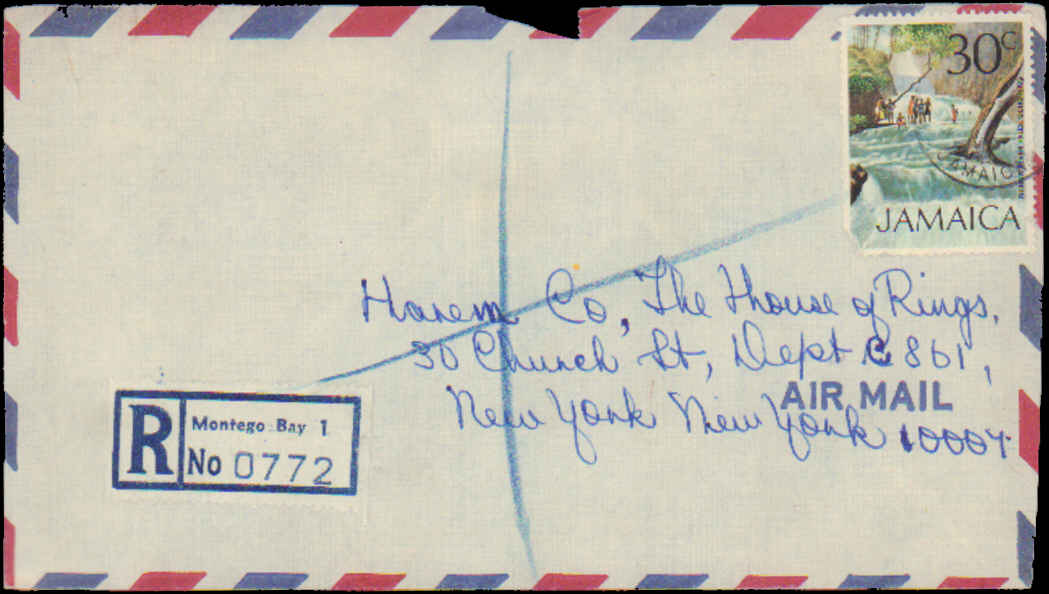 30c
JAMAICA
JAMAICA
Harem Co, The House of Rings,
30 Church St, Dept C 861,
AIR MAIL
New York New York 10007
R
Montego Bay 1
No 0772